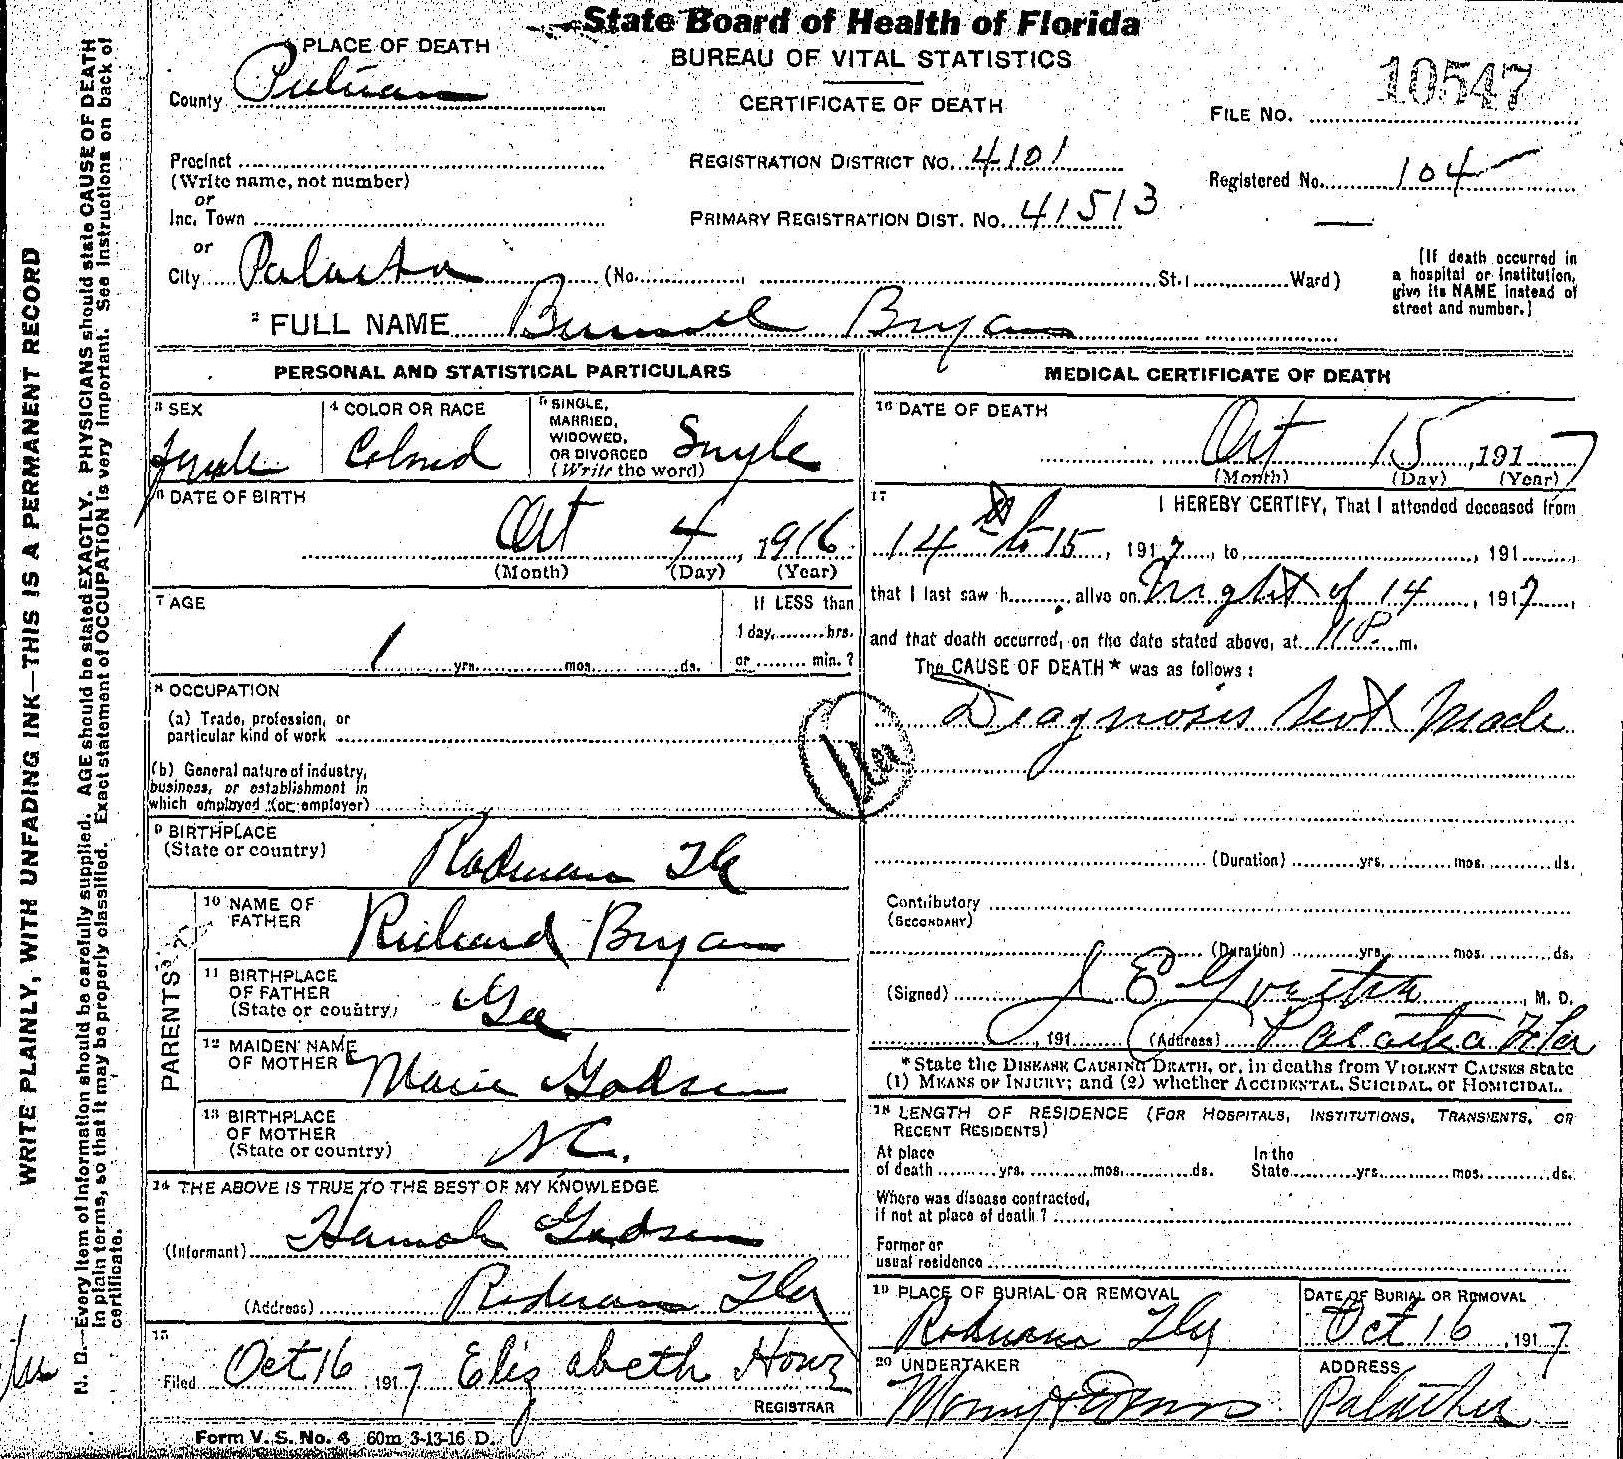 State Board of Health of Florida
BUREAU OF VITAL STATISTICS
CERTIFICATE OF DEATH
PLACE OF DEATH
County Putnam
FILE NO. 10547
Precinct
(Write name, not number)
or
REGISTRATION DISTRICT NO. 4101
Registered No. 104
Inc. Town
or
PRIMARY REGISTRATION DIST. NO. 41513
City Palatka (No. , St.; Ward)
[If death occurred in a hospital or institution, give its NAME instead of street and number.]
2 FULL NAME Bryan
PERSONAL AND STATISTICAL PARTICULARS
3 SEX
female
4 COLOR OR RACE
Colored
5 SINGLE, MARRIED, WIDOWED, OR DIVORCED
(Write the word)
Single
6 DATE OF BIRTH
Oct 4, 1916
(Month) (Day) (Year)
7 AGE
1 yrs. mos. ds.
If LESS than
1 day, hrs.
or min.?
8 OCCUPATION
(a) Trade, profession, or
particular kind of work
(b) General nature of industry,
business, or establishment in
which employed (or employer)
9 BIRTHPLACE
(State or country)
Rodman Fla
PARENTS
10 NAME OF
FATHER
Richard Bryan
11 BIRTHPLACE
OF FATHER
(State or country)
Ga
12 MAIDEN NAME
OF MOTHER
Marie
13 BIRTHPLACE
OF MOTHER
(State or country)
N C.
14 THE ABOVE IS TRUE TO THE BEST OF MY KNOWLEDGE
(Informant) Hannah
(Address) Rodman Fla
15
Filed Oct 16 1917 Elizabeth
REGISTRAR
Form V. S. No. 4 60m 3-13-16 D.
MEDICAL CERTIFICATE OF DEATH
16 DATE OF DEATH
Oct 15, 1917
(Month) (Day) (Year)
17 I HEREBY CERTIFY, That I attended deceased from
14th to 15, 1917, to , 191 ,
that I last saw h alive on Night of 14, 1917,
and that death occurred, on the date stated above, at m.
The CAUSE OF DEATH* was as follows:
Diagnosis Not Made
(Duration) yrs. mos. ds.
Contributory
(SECONDARY)
(Duration) yrs. mos. ds.
(Signed) J E , M. D.
, 191 (Address) Palatka Fla
*State the DISEASE CAUSING DEATH, or, in deaths from VIOLENT CAUSES state
(1) MEANS OF INJURY; and (2) whether ACCIDENTAL, SUICIDAL, or HOMICIDAL.
18 LENGTH OF RESIDENCE (FOR HOSPITALS, INSTITUTIONS, TRANSIENTS, OR
RECENT RESIDENTS)
At place
of death yrs. mos. ds.
In the
State yrs. mos. ds.
Where was disease contracted,
if not at place of death?
Former or
usual residence
19 PLACE OF BURIAL OR REMOVAL
Rodman Fla
DATE OF BURIAL OR REMOVAL
Oct 16, 1917
20 UNDERTAKER
ADDRESS
WRITE PLAINLY, WITH UNFADING INK—THIS IS A PERMANENT RECORD
N. B.—Every item of information should be carefully supplied. AGE should be stated EXACTLY. PHYSICIANS should state CAUSE OF DEATH
in plain terms, so that it may be properly classified. Exact statement of OCCUPATION is very important. See instructions on back of
certificate.